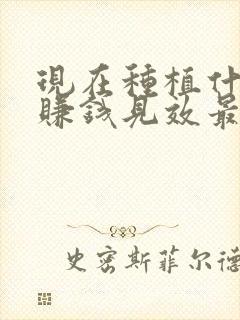 現在種植什
賺錢見效最
史密斯菲尔德